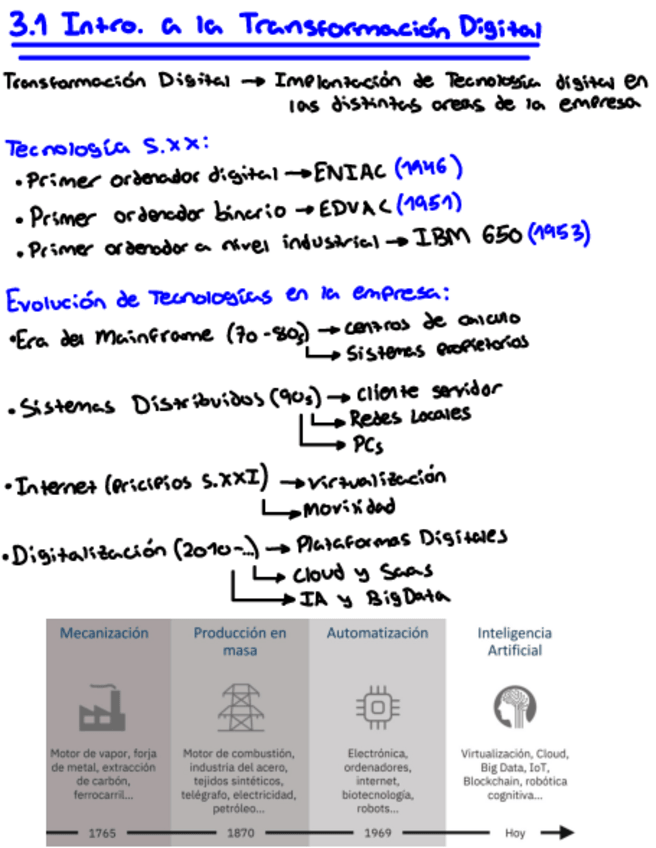 3.1 Intro. a la Transformación Digital
Transformación Digital → Implantación de Tecnología digital en
las distintas areas de la empresa
Tecnología S.XX:
• Primer ordenador digital → ENIAC (1946)
• Primer ordenador binario → EDVAC (1951)
• Primer ordenador a nivel industrial → IBM 650 (1953)
Evolución de Tecnologías en la empresa:
• Era del Mainframe (70-80s) → centros de calculo
→ Sistemas propietarios
• Sistemas Distribuidos (90s) → cliente servidor
→ Redes Locales
→ PCs
• Internet (pricipios S.XXI) → virtualización
→ movilidad
• Digitalización (2010-...) → Plataformas Digitales
→ Cloud y Saas
→ IA y BigData
Mecanización
Motor de vapor, forja
de metal, extracción
de carbón,
ferrocarril...
1765
Producción en
masa
Motor de combustión,
industria del acero,
tejidos sintéticos,
telégrafo, electricidad,
petróleo...
1870
Automatización
Electrónica,
ordenadores,
internet,
biotecnología,
robots...
1969
Inteligencia
Artificial
Virtualización, Cloud,
Big Data, IoT,
Blockchain, robótica
cognitiva...
Hoy